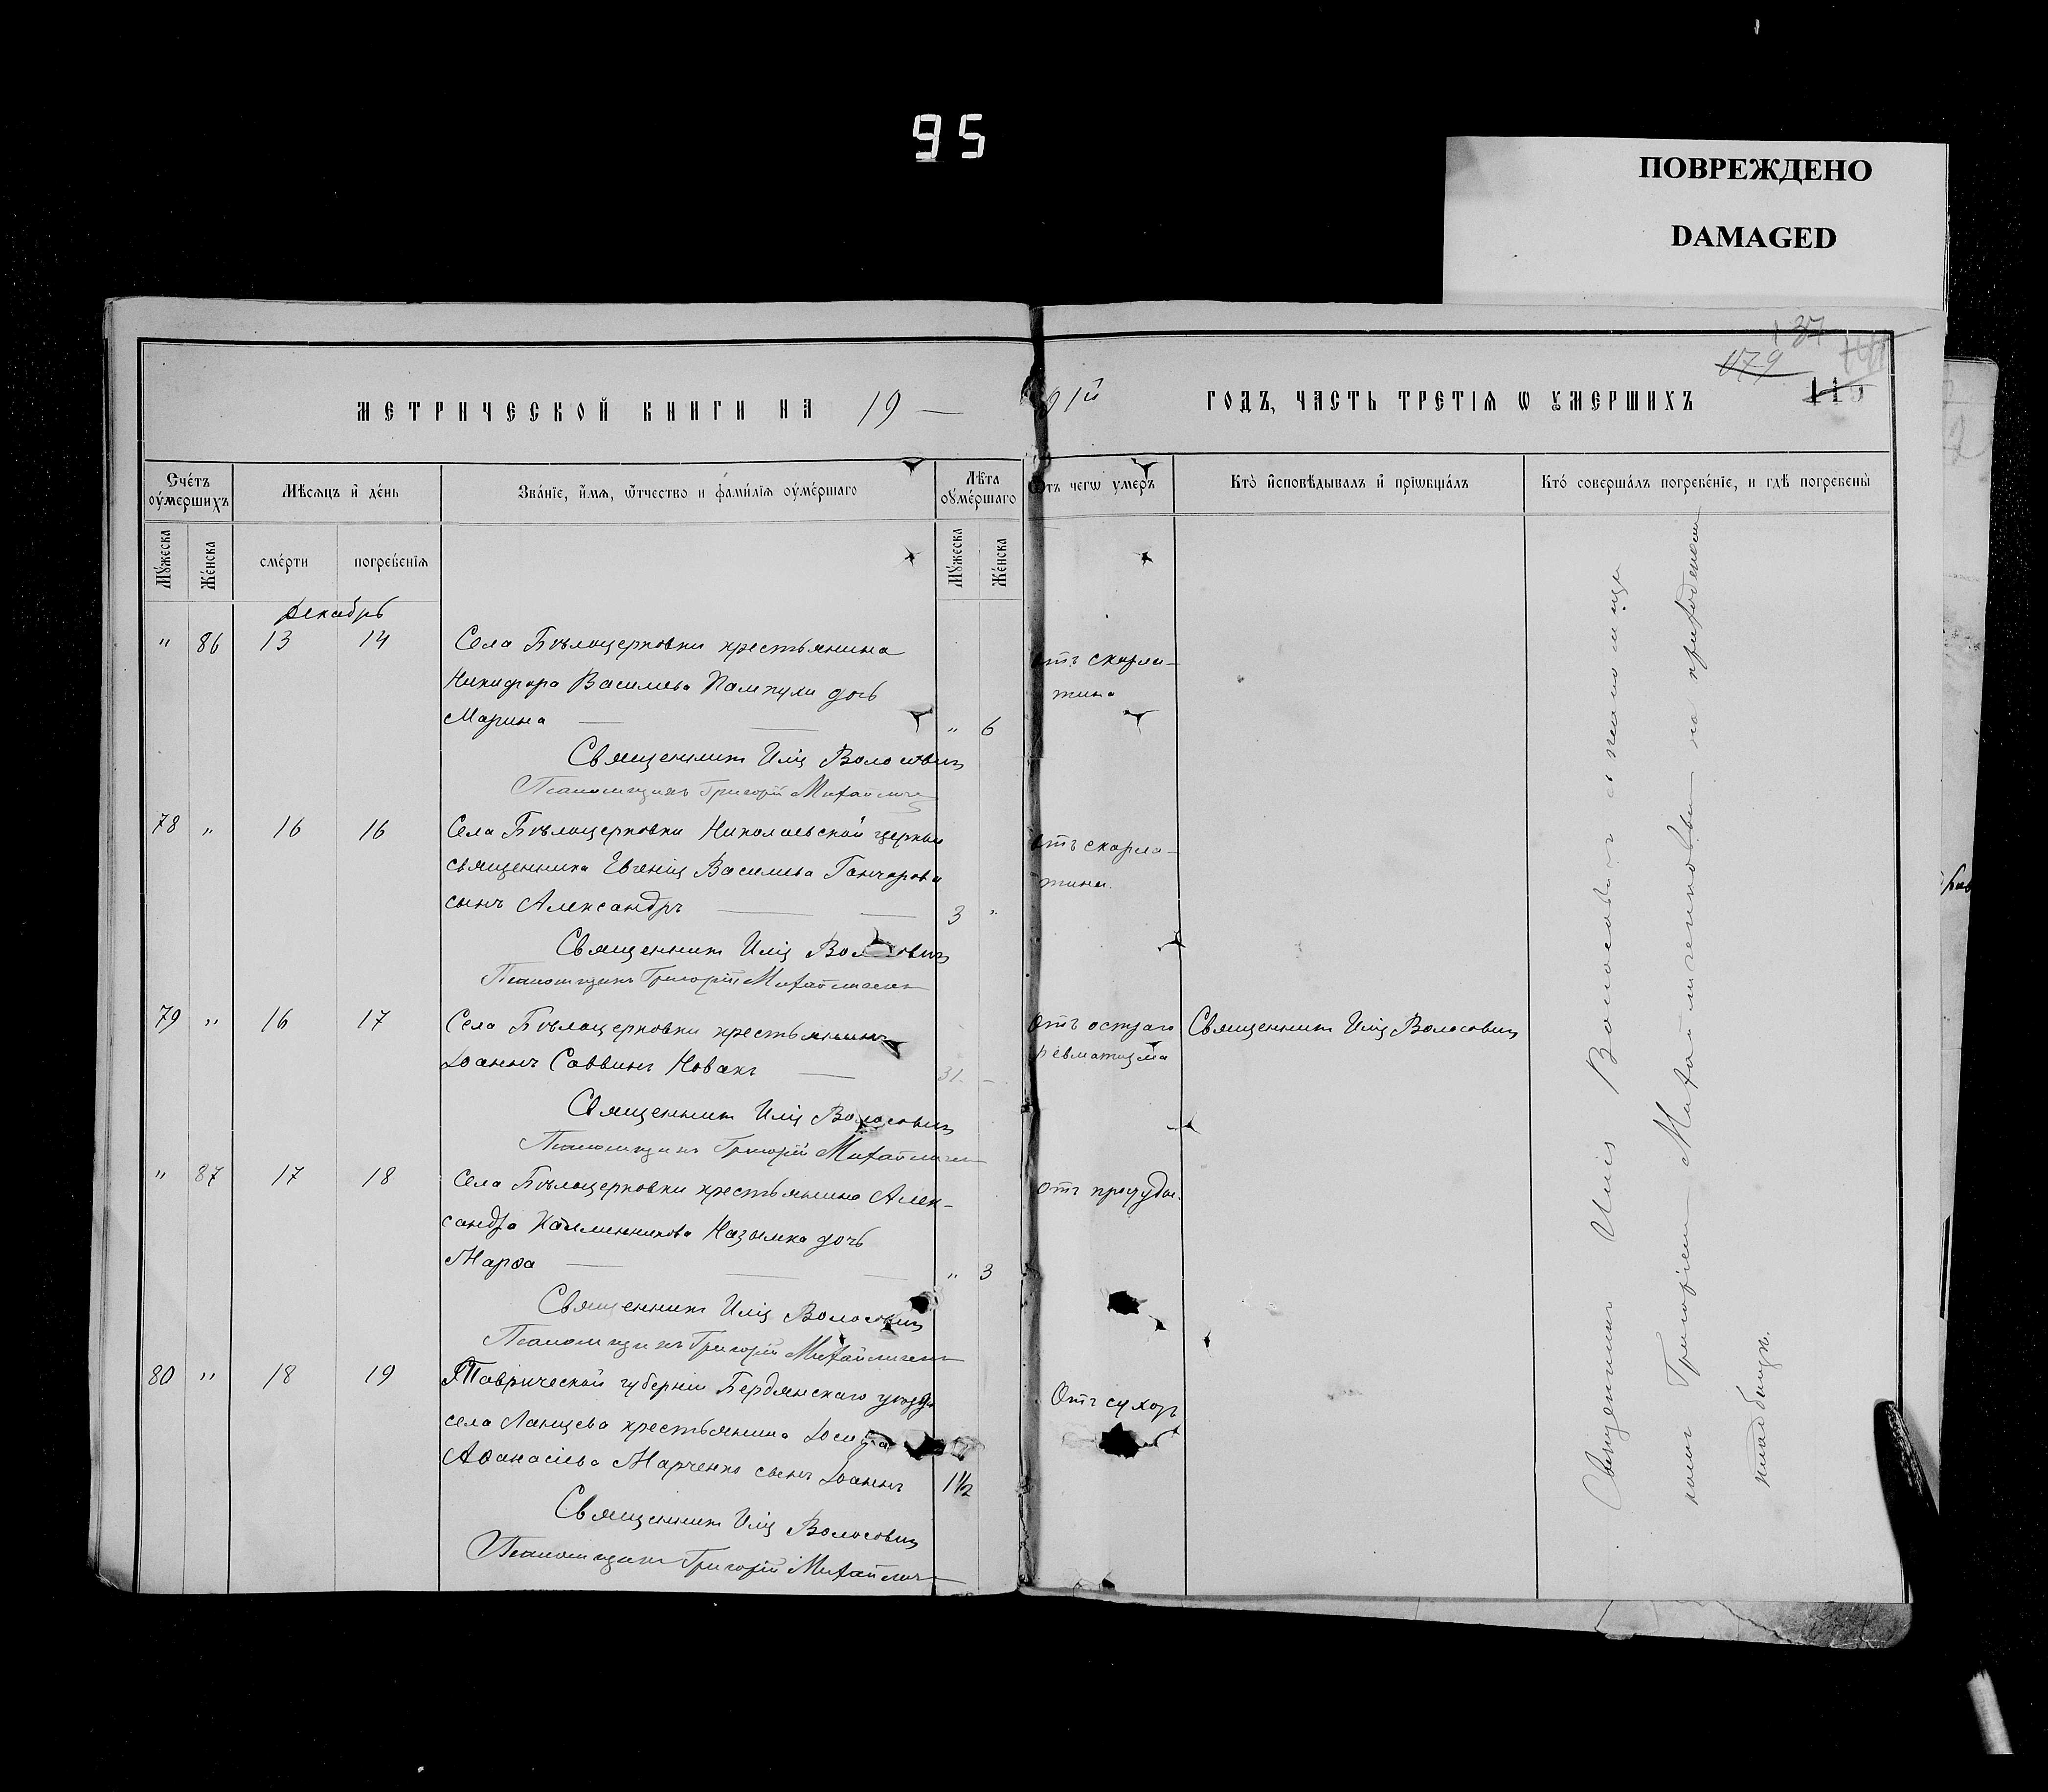 95
ПОВРЕЖДЕНО
DAMAGED
137
179
115
МЕТРИЧЕСКОЙ КНИГИ НА 19 — 01й ГОДЪ, ЧАСТЬ ТРЕТІѦ Ѡ УМЕРШИХЪ
Счетъ умершихъ
Мѣсяцъ и день
Званіе, имя, отчество и фамилія умершаго
Лѣта умершаго
Отъ чегω умеръ
Кто исповѣдывалъ и пріωбщалъ
Кто совершалъ погребеніе, и гдѣ погребены
Мужеска
Женска
смерти
погребенія
Мужеска
Женска
Декабрь
" 86 13 14 Села Бѣлоцерковки крестьянина
Никифора Василиева дочь
Марина — " 6
отъ скарла-
тина
Священникъ Илія Волосовичъ
Псаломщикъ Григорій Михайличенко
78 " 16 16 Села Бѣлоцерковки Николаевской церкви
священника Евгенія Василиева Гончарова
сынъ Александръ — 3 "
отъ скарла-
тины.
Священникъ Илія Волосовичъ
Псаломщикъ Григорій Михайличенко
79 " 16 17 Села Бѣлоцерковки крестьянинъ
Іоаннъ Саввинъ Новакъ — 31. —
Отъ остраго
ревматизма
Священникъ Илія Волосовичъ
Священникъ Илія Волосовичъ
Псаломщикъ Григорій Михайличенко
" 87 17 18 Села Бѣлоцерковки крестьянина Алек-
сандра дочь
Марѳа — " 3
отъ простуды.
Священникъ Илія Волосовичъ
Псаломщикъ Григорій Михайличенко
80 " 18 19 Таврической губерніи Бердянскаго уѣзда
села крестьянина Іосифа
Аѳанасіева Марченко сынъ Іоаннъ 1½
Отъ сухотъ
Священникъ Илія Волосовичъ
Псаломщикъ Григорій Михайличенко
Священникъ Илія Волосовичъ съ псаломщи-
комъ Григоріемъ Михайличенковымъ на приходскомъ
кладбищѣ.